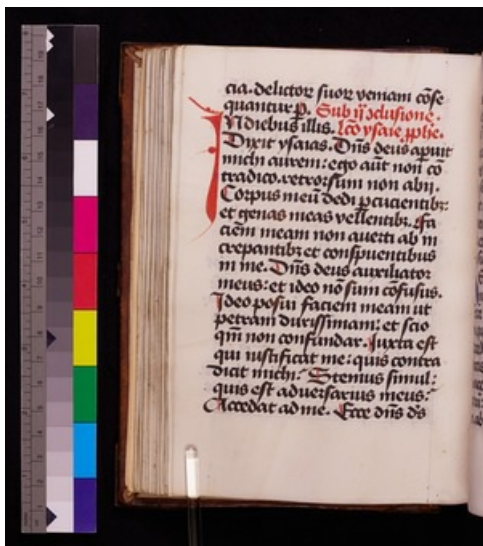 cia. delictoꝝ suoꝝ veniam cōse
quantur p̲. Sub ij ɔclusione.
INdiebus illis. lcō ysaie ꝓphe.
Dixit ysaias. Dn̄s deus apuit
michi aurem: ego aūt non cō
tradico. retrorsum non abij.
Corpus meū dedi percucientibꝫ:
et genas meas vellentibꝫ. fa
ciēm meam non auerti ab in
crepantibꝫ et conspuentibus
in me. Dn̄s deus auxiliator
meus: et ideo nō sum cōfusus.
Ideo posui faciem meam ut
petram durissimam: et scio
qm̄ non confundar. Juxta est
qui iustificat me: quis contra
dicit michi: Stemus simul:
quis est aduersarius meus:
Accedat ad me. Ecce dn̄s ds̄